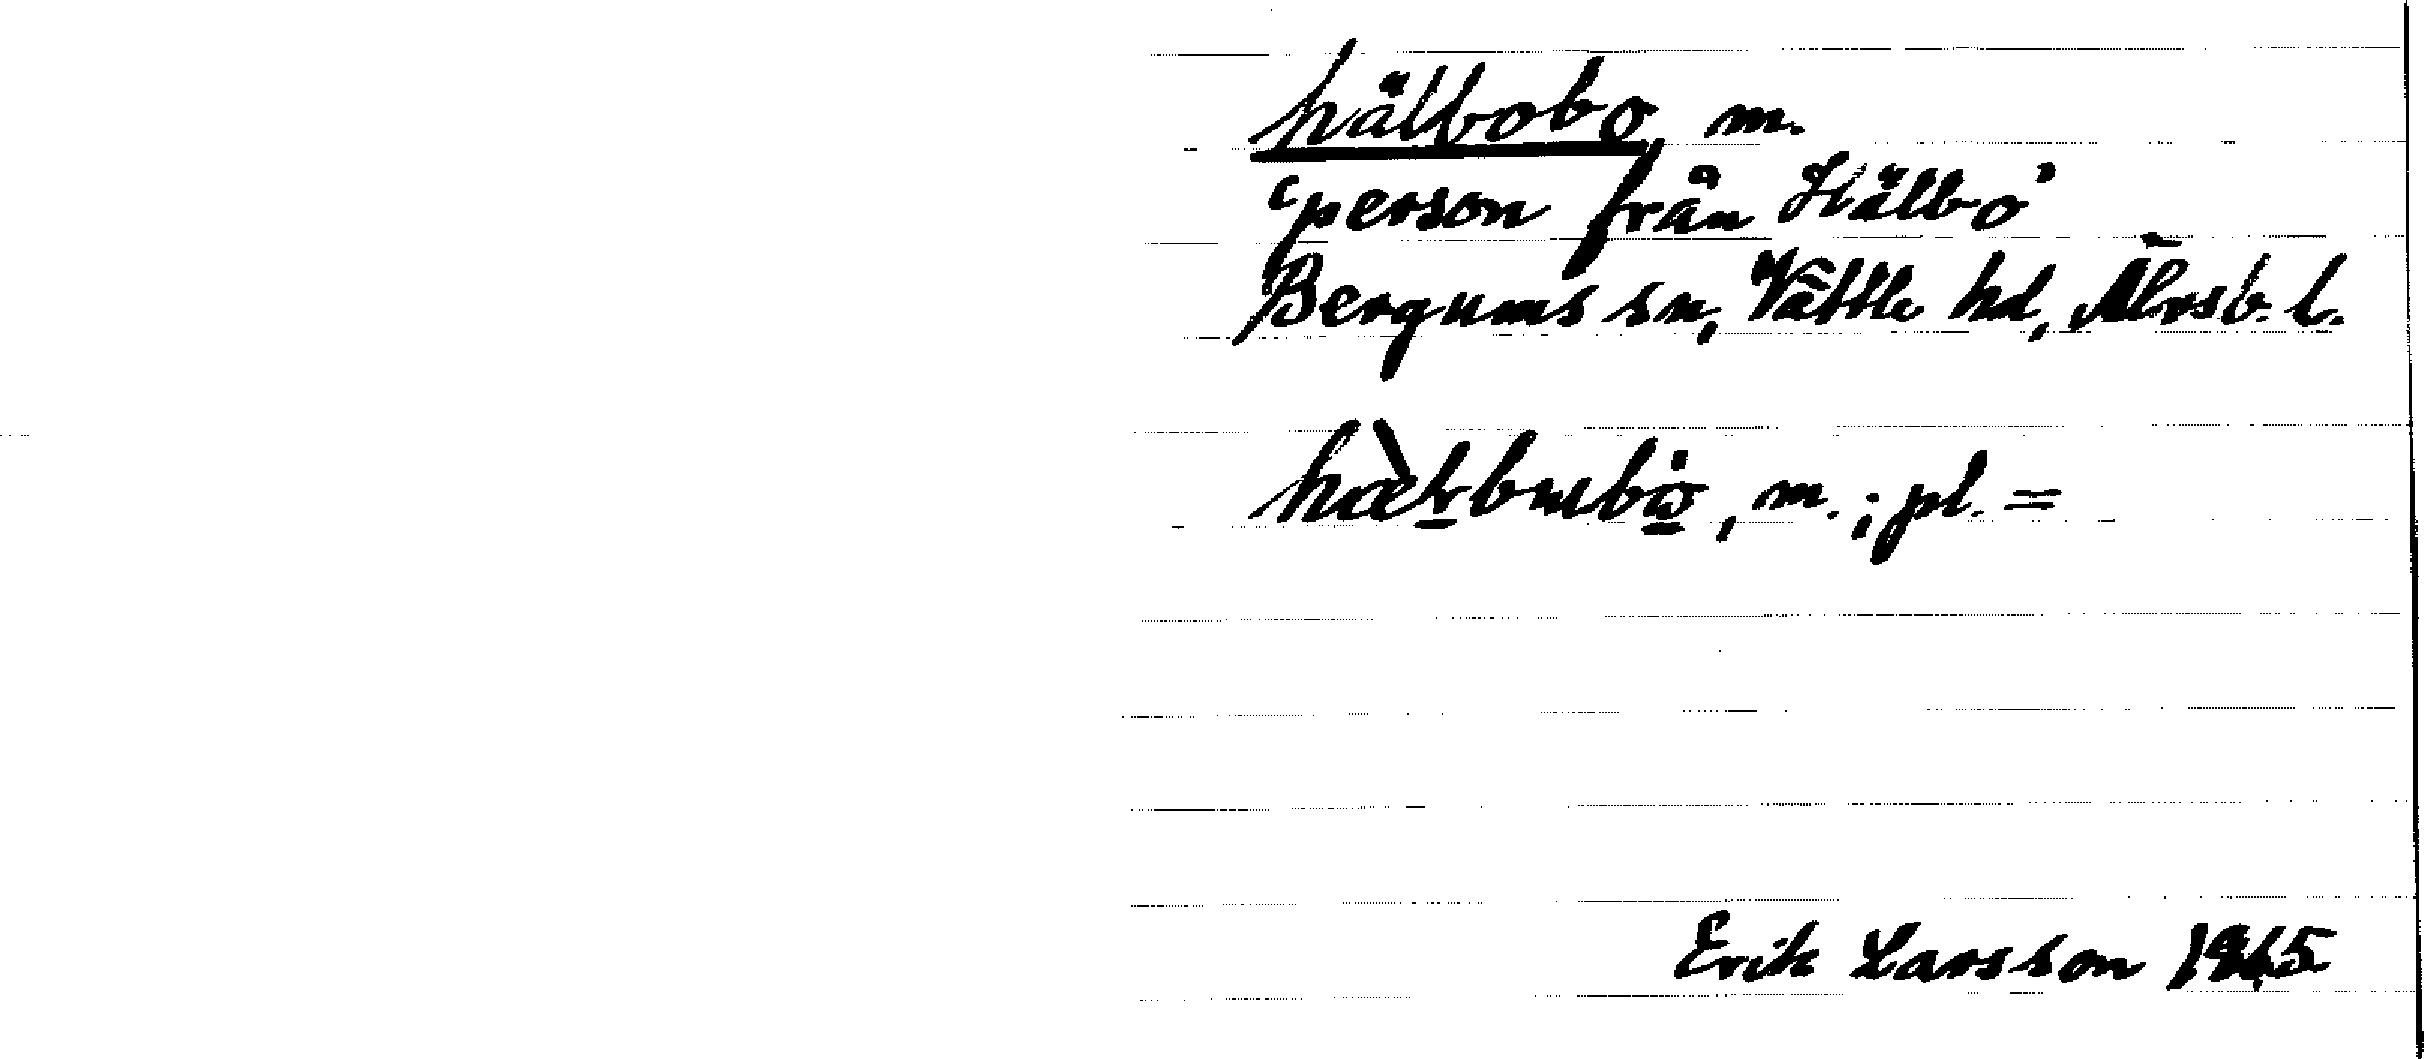 hälbobo, m.
'person från Hälbo'
Bergums sn, Vättle hd, Älvsb. l.
m.; pl. =
Erik Larsson 1945